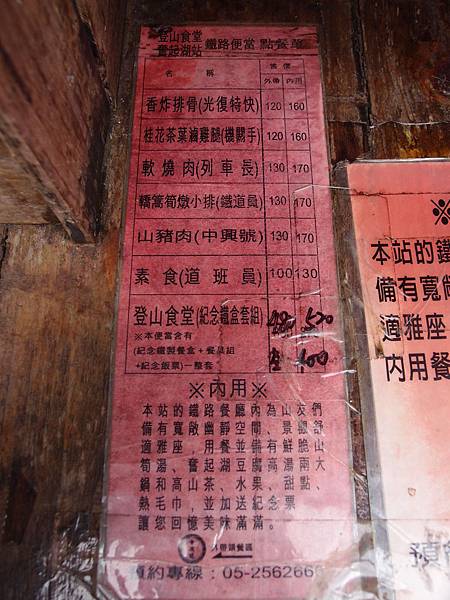 登山食堂
奮起湖站 鐵路便當 點餐單
名 稱 售價
外帶 內用
香炸排骨(光復特快) 120 160
桂花茶葉滷雞腿(機關手) 120 160
軟燒肉(列車長) 130 170
轎篙筍燉小排(鐵道員) 130 170
山豬肉(中興號) 130 170
素食(道班員) 100 130
登山食堂(紀念鐵盒套組) 520
※本便當含有
(紀念鐵製餐盒+餐具組
+紀念飯票)一整套 100
※內用※
本站的鐵路餐廳內為山友們
備有寬敞幽靜空間、景觀舒
適雅座,用餐並備有鮮脆山
筍湯、奮起湖豆腐高湯兩大
鍋和高山茶、水果、甜點、
熱毛巾,並加送紀念票
讓您回憶美味滿滿。
預約專線:05-256266
※
本站的鐵
備有寬敞
適雅座
內用餐
預